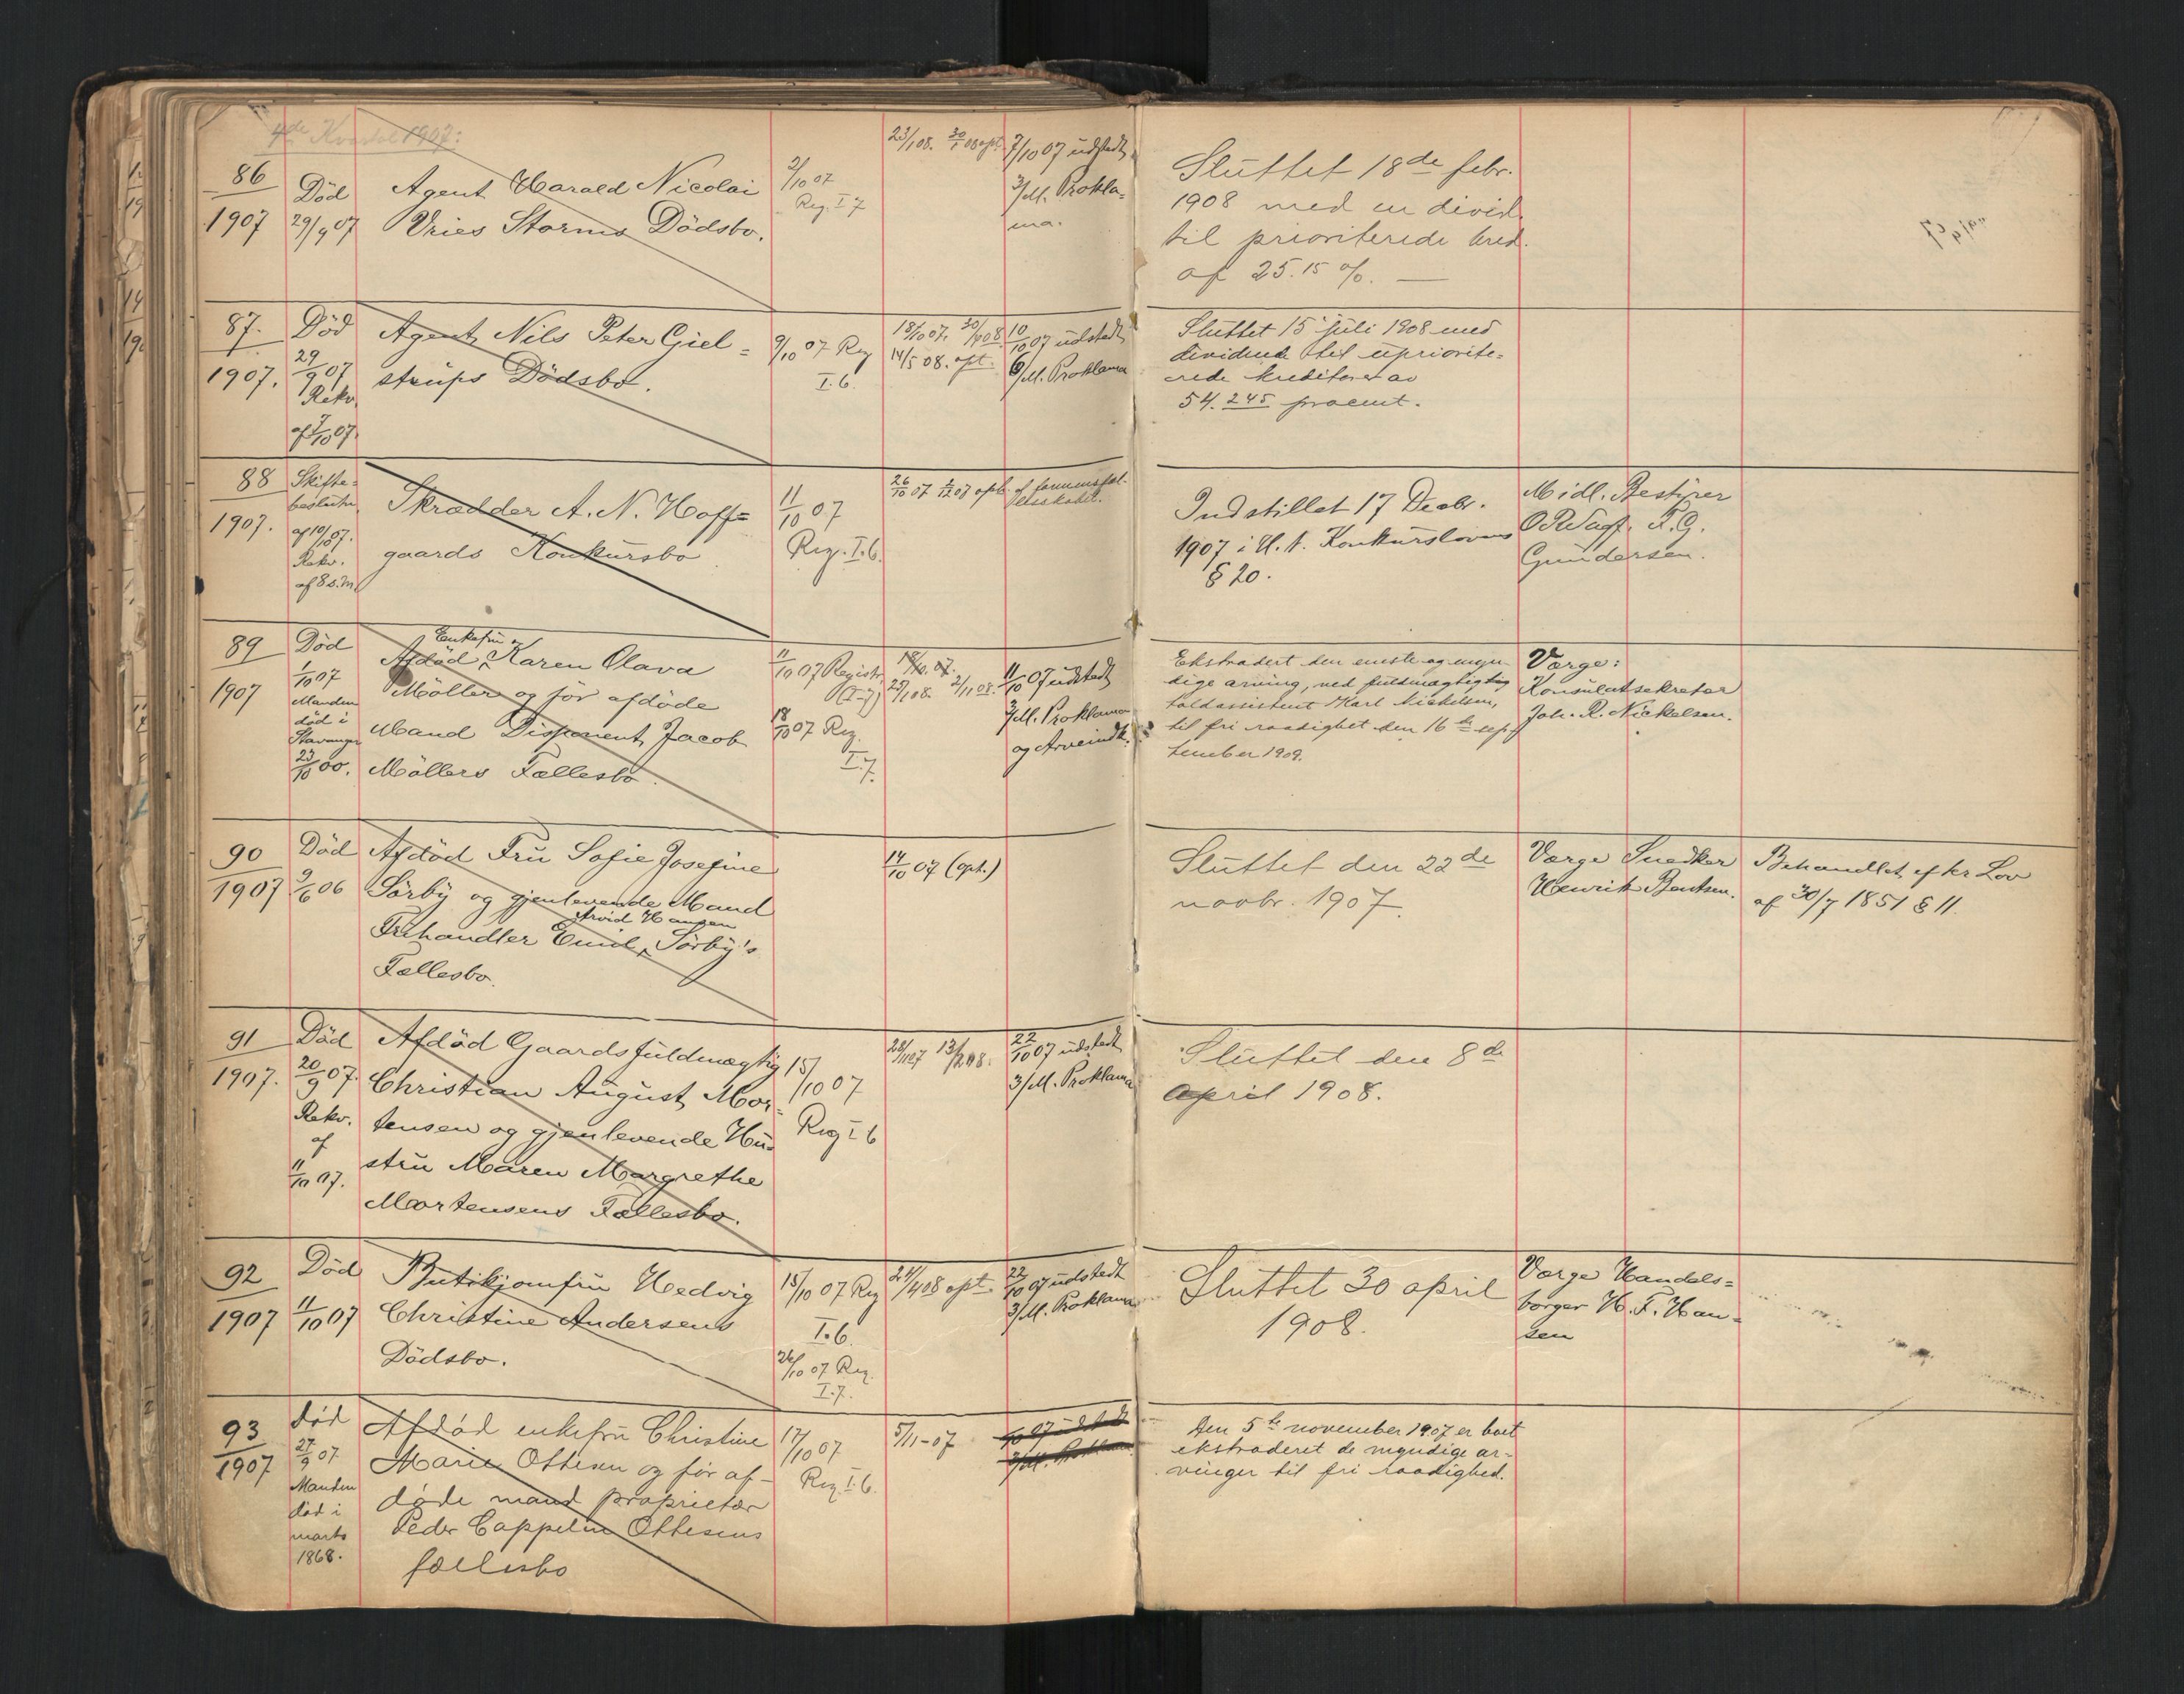 4de Kvartal 1907:
86
1907
Död
29/9 07
Agent Harald Nicolai
Vries Storms Dödsbo.
2/10 07
Reg. I 7
23/1 08. 30/1 08 opt.
7/10 07 udstedt
3/M. Prokla-
ma.
Sluttet 18de febr.
1908 med en divid.
til prioriterede kred.
af 25.15 %. —
87.
1907.
Död
29/9 07
Rekv.
af 7/10 07.
Agent Nils Peter Giel=
strups Dödsbo.
9/10 07 Reg
I.6.
18/10 07. 30/4 08.
14/5 08. opt.
10/10 07 udstedt
6/M. Proklama
Sluttet 15 juli 1908 med
dividende til upriorite=
rede kreditorer av
54.245 procent.
88
1907.
Skifte=
beslutn.
af 10/10 07.
Rekv.
af 8 s.M.
Skrædder A. N. Hoff=
gaards Konkursbo
11/10 07
Reg. I.6.
26/10 07 opt.
Indstillet 17 Decbr.
1907 i H. t. Konkurslovens
§ 20.
Midl. Bestyrer
O.R.Sagf. F. G.
Gundersen.
89
1907
Död
1/10 07
Manden
död i
Stavanger
23/10 00.
Enkefru
Afdöd Karen Olava
Möller og för afdöde
Mand Disponent Jacob
Möllers Fællesbo.
11/10 07 Registr.
(I-7)
18/10 07 Reg.
I.7.
18/10. 07.
29/1 08. 2/11 08.
11/10 07 udstedt
3/M. Proklama
og Arveindk.
Ekstradert den eneste og myn-
dige arving, ved fuldmægtig
toldassistent Karl Nickelsen,
til fri raadighet den 16de sep-
tember 1909.
Værge:
Konsulatsekretær
Joh. R. Nickelsen.
90
1907
Död
9/6 06
Afdöd Fru Sofie Josefine
Sörby og gjenlevende Mand
Arvid Hansen
Frihandler Emil Sörby's
Fællesbo.
14/10 07 (opt.)
Sluttet den 22de
novbr. 1907.
Værge Snedker
Henrik Bentsen.
Behandlet efter Lov
af 30/7 1851 § 11.
91
1907.
Död
20/9 07.
Rekv.
af
11/10 07.
Afdöd Gaardsfuldmægtig
Christian August Mor-
tensen og gjenlevende Hu-
stru Maren Margrethe
Mortensens Fællesbo.
15/10 07
Reg I 6
28/11 07 13/2 08.
22/10 07 udstedt
3/M. Proklama
Sluttet den 8de
april 1908.
92
1907
Död
11/10 07
Butikjomfru Hedvig
Christine Andersens
Dödsbo.
15/10 07 Reg
I.6.
26/10 07 Reg.
I.7.
24/4 08 opt.
22/10 07 udstedt
3/M. Proklama
Sluttet 30 april
1908.
Værge Handels=
borger H. F. Han=
sen
93
1907
död
27/9 07
Manden
död i
marts
1868.
Afdöd enkefru Christine
Marie Ottesen og för af-
döde mand proprietær
Peder Cappelen Ottesens
fællesbo
17/10 07
Reg. I.6.
5/11-07
10 07 udstedt
3/M. Proklama
Den 5te november 1907 er boet
ekstraderet de myndige ar-
vinger til fri raadighed.